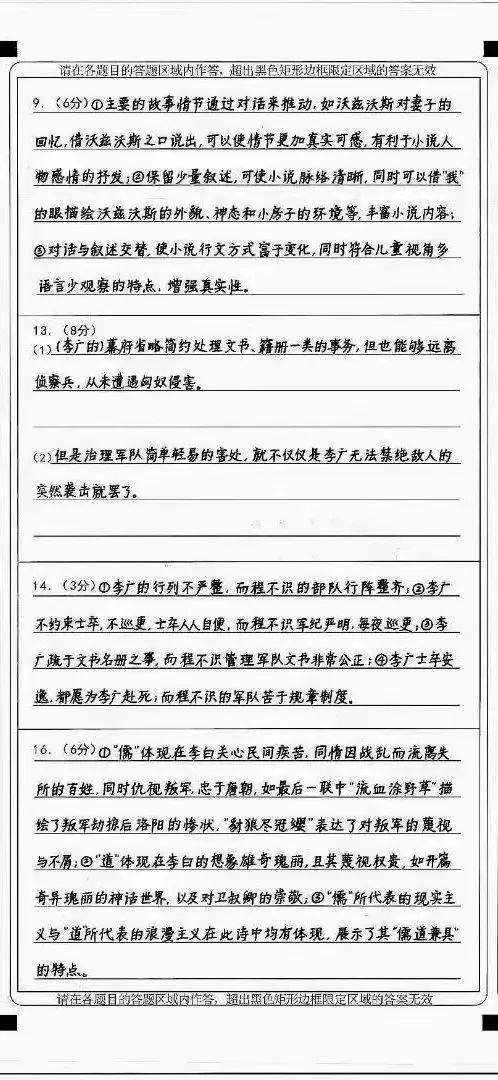 请在各题目的答题区域内作答，超出黑色矩形边框限定区域的答案无效
9.（6分）①主要的故事情节通过对话来推动,如沃兹沃斯对妻子的
回忆,借沃兹沃斯之口说出,可以使情节更加真实可感,有利于小说人
物感情的抒发;②保留少量叙述,可使小说脉络清晰,同时可以借"我"
的眼描绘沃兹沃斯的外貌、神态和小房子的环境等,丰富小说内容;
③对话与叙述交替,使小说行文方式富于变化,同时符合儿童视角多
语言少观察的特点,增强真实性。
13.（8分）
(1)(李广的)幕府省略简约处理文书、籍册一类的事务,但也能够远离
侦察兵,从未遭遇匈奴侵害。
(2)但是治理军队简单轻易的害处,就不仅仅是李广无法禁绝敌人的
突然袭击就罢了。
14.（3分）①李广的行列不严整,而程不识的部队行阵整齐;②李广
不约束士卒,不巡更,士卒人人自便,而程不识军纪严明,每夜巡更;③李
广疏于文书名册之事,而程不识管理军队文书非常公正;④李广士卒安
逸,都愿为李广赴死;而程不识的军队苦于规章制度。
16.（6分）①"儒"体现在李白关心民间疾苦,同情因战乱而流离失
所的百姓,同时仇视叛军,忠于唐朝,如最后一联中"流血涂野草"描
绘了叛军劫掠后洛阳的惨状,"豺狼尽冠缨"表达了对叛军的蔑视
与不屑;②"道"体现在李白的想象雄奇瑰丽,且其蔑视权贵,如开篇
奇异瑰丽的神话世界,以及对卫叔卿的崇敬;③"儒"所代表的现实主
义与"道"所代表的浪漫主义在此诗中均有体现,展示了其"儒道兼具"
的特点。
请在各题目的答题区域内作答，超出黑色矩形边框限定区域的答案无效